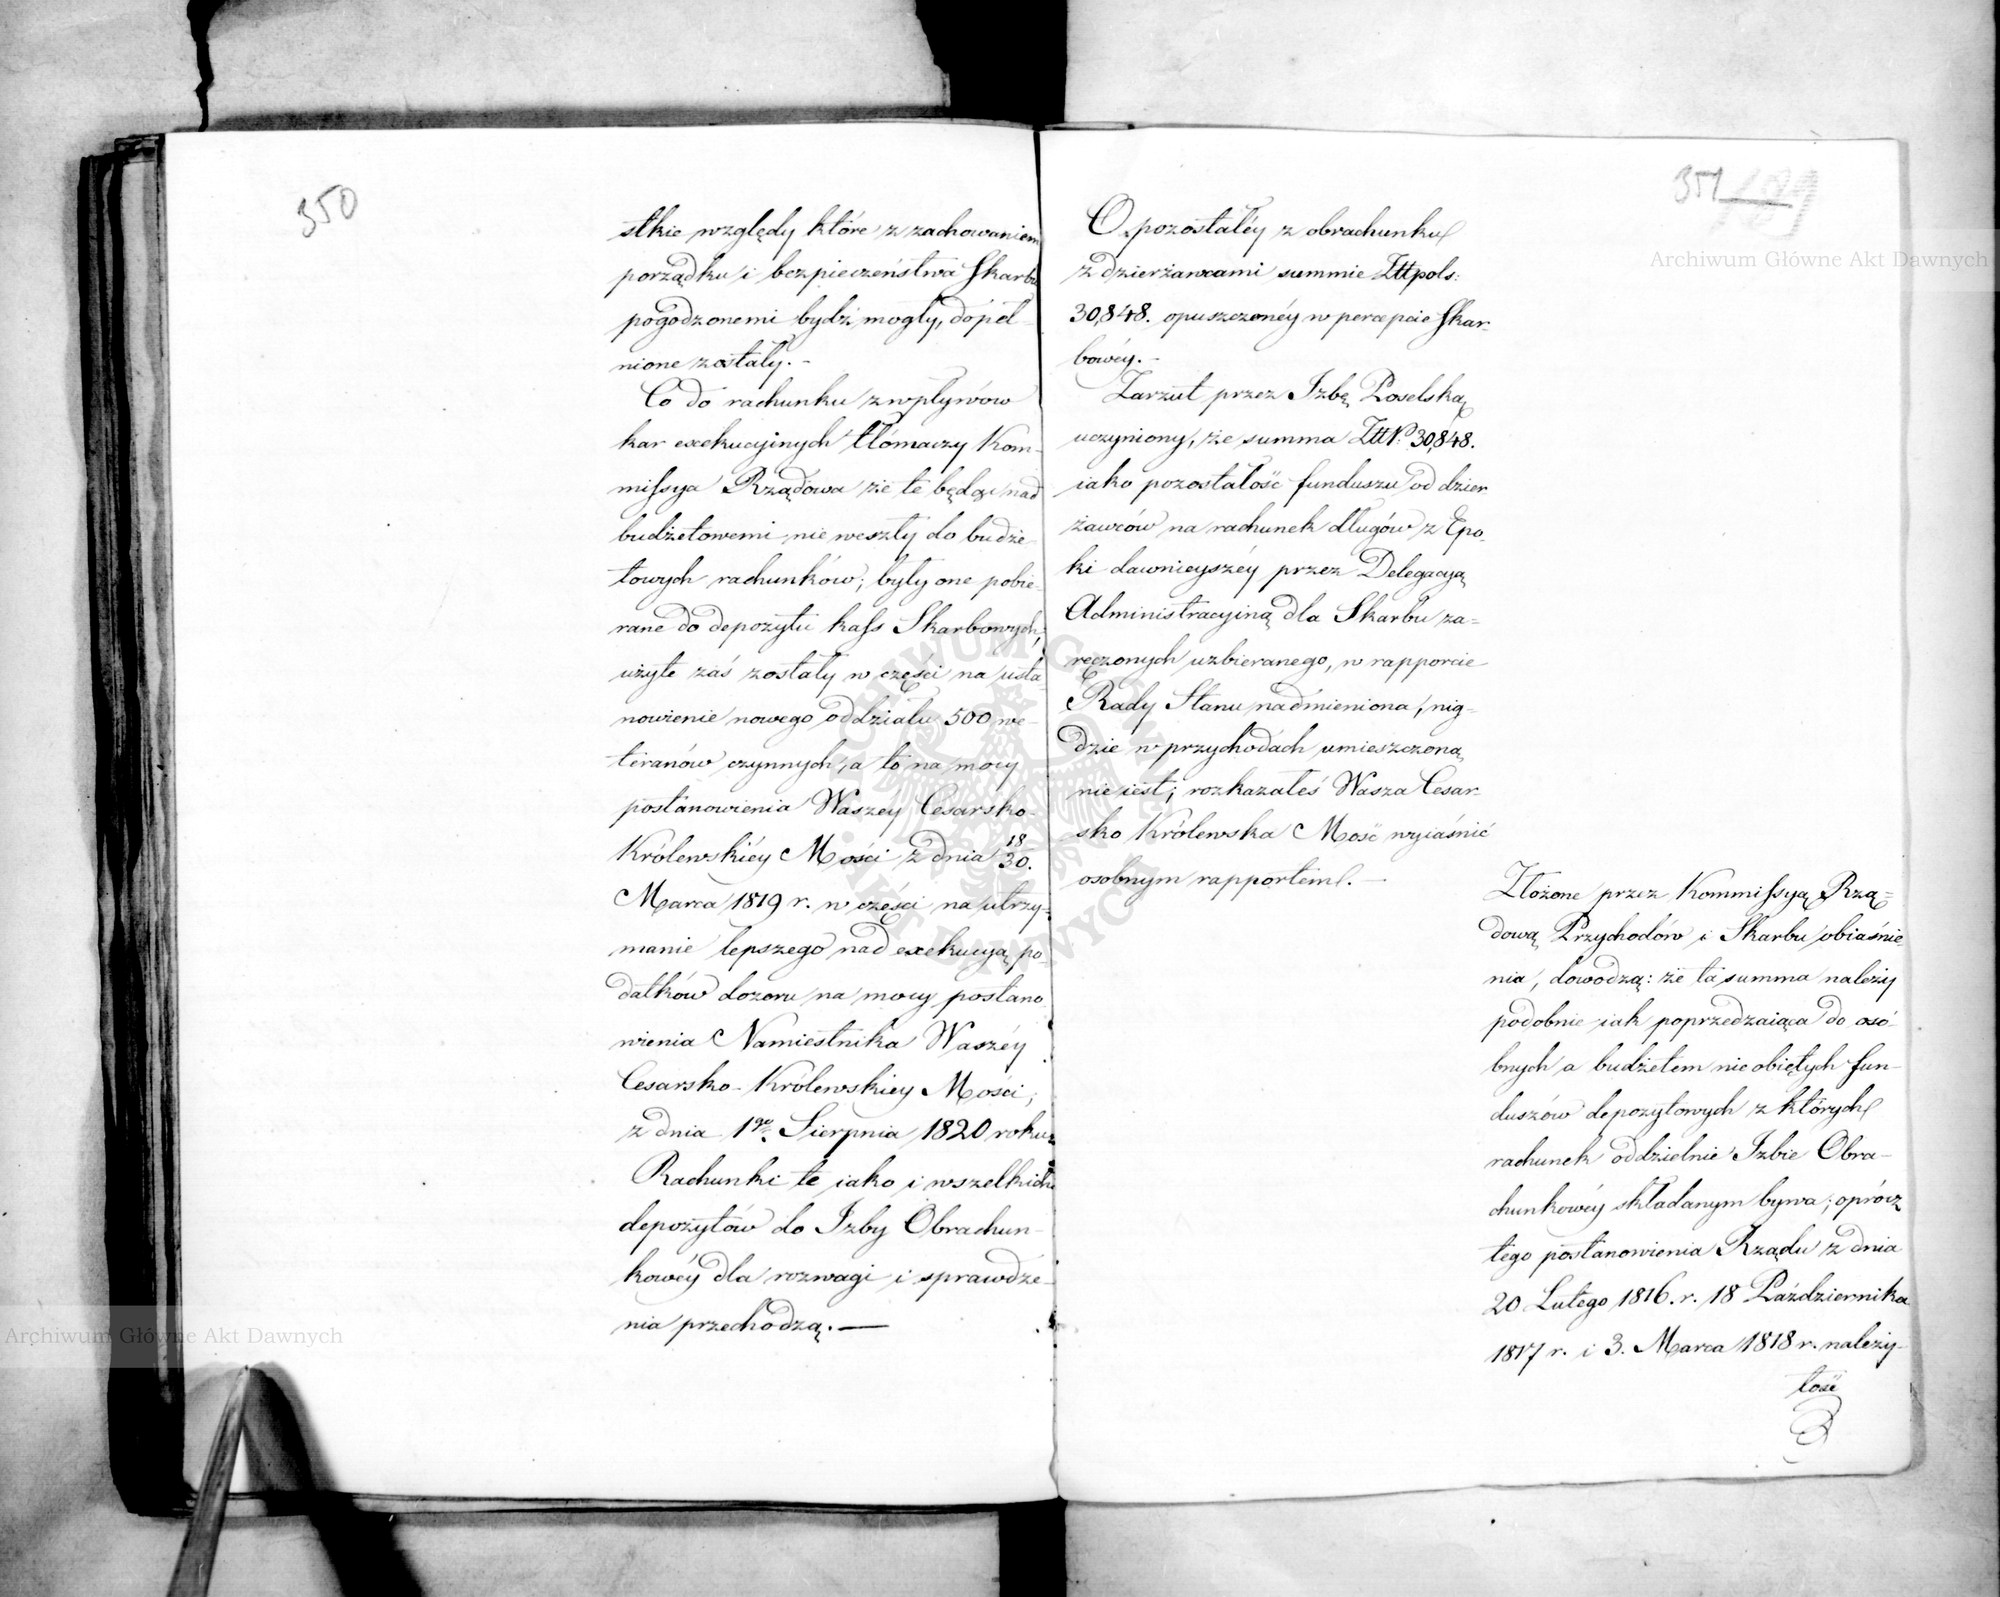 350
stkie względy które z zachowaniem
porządku i bezpieczeństwa Skarbu
pogodzonemi bydź mogły, dopeł-
nione zostały.-
Co do rachunku z wpływów
kar exekucyinych tłómaczy Kom-
missya Rządowa że te będąc nad
budżetowemi nie weszły do budże-
towych rachunków; były one pobie-
rane do depozytu kass Skarbowych;
użyte zaś zostały w części na usta-
nowienie nowego oddziału 500 we-
teranów czynnych, a to na mocy
postanowienia Waszey Cesarsko-
Królewskiéy Mości z dnia 18/30.
Marca 1819 r. w części na utrzy-
manie lepszego nad exekucyą po-
datków dozoru na mocy postano-
wienia Namiestnika Waszéy
Cesarsko-Królewskiey Mości,
z dnia 1go Sierpnia 1820 roku.
Rachunki te iako i wszelkich
depozytów do Izby Obrachun-
kowéy dla rozwagi i sprawdze-
nia przechodzą.—
351 189
O pozostałéy z obrachunku
z dzierżawcami summie Złtpols:
30,848. opuszczonéy w percepcie Skar-
bowéy.-
Zarzut przez Izbę Poselską
uczyniony, że summa ZłtP. 30,848.
iako pozostałość funduszu od dzier
żawców na rachunek długów z Epo-
ki dawnieyszéy przez Delegacyą
Administracyiną dla Skarbu za-
ręczonych uzbieranego, w rapporcie
Rady Stanu nadmieniona, nig-
dzie w przychodach umieszczoną
nie iest; rozkazałeś Wasza Cesar-
sko Królewska Mość wyiaśnić
osobnym rapportem.—
Złożone przez Kommissyą Rzą-
dową Przychodów i Skarbu obiaśnie-
nia, dowodzą: że ta summa należy
podobnie iak poprzedzaiąca do osó-
bnych a budżetem nie obiętych fun-
duszów depozytowych z których
rachunek oddzielnie Izbie Obra-
chunkowéy składanym bywa; oprócz
tego postanowienia Rządu z dnia
20 Lutego 1816. r. 18 Października
1817 r. i 3. Marca 1818 r. należy-
tość
Archiwum Główne Akt Dawnych
Archiwum Główne Akt Dawnych
ARCHIWUM GŁÓWNE AKT DAWNYCH